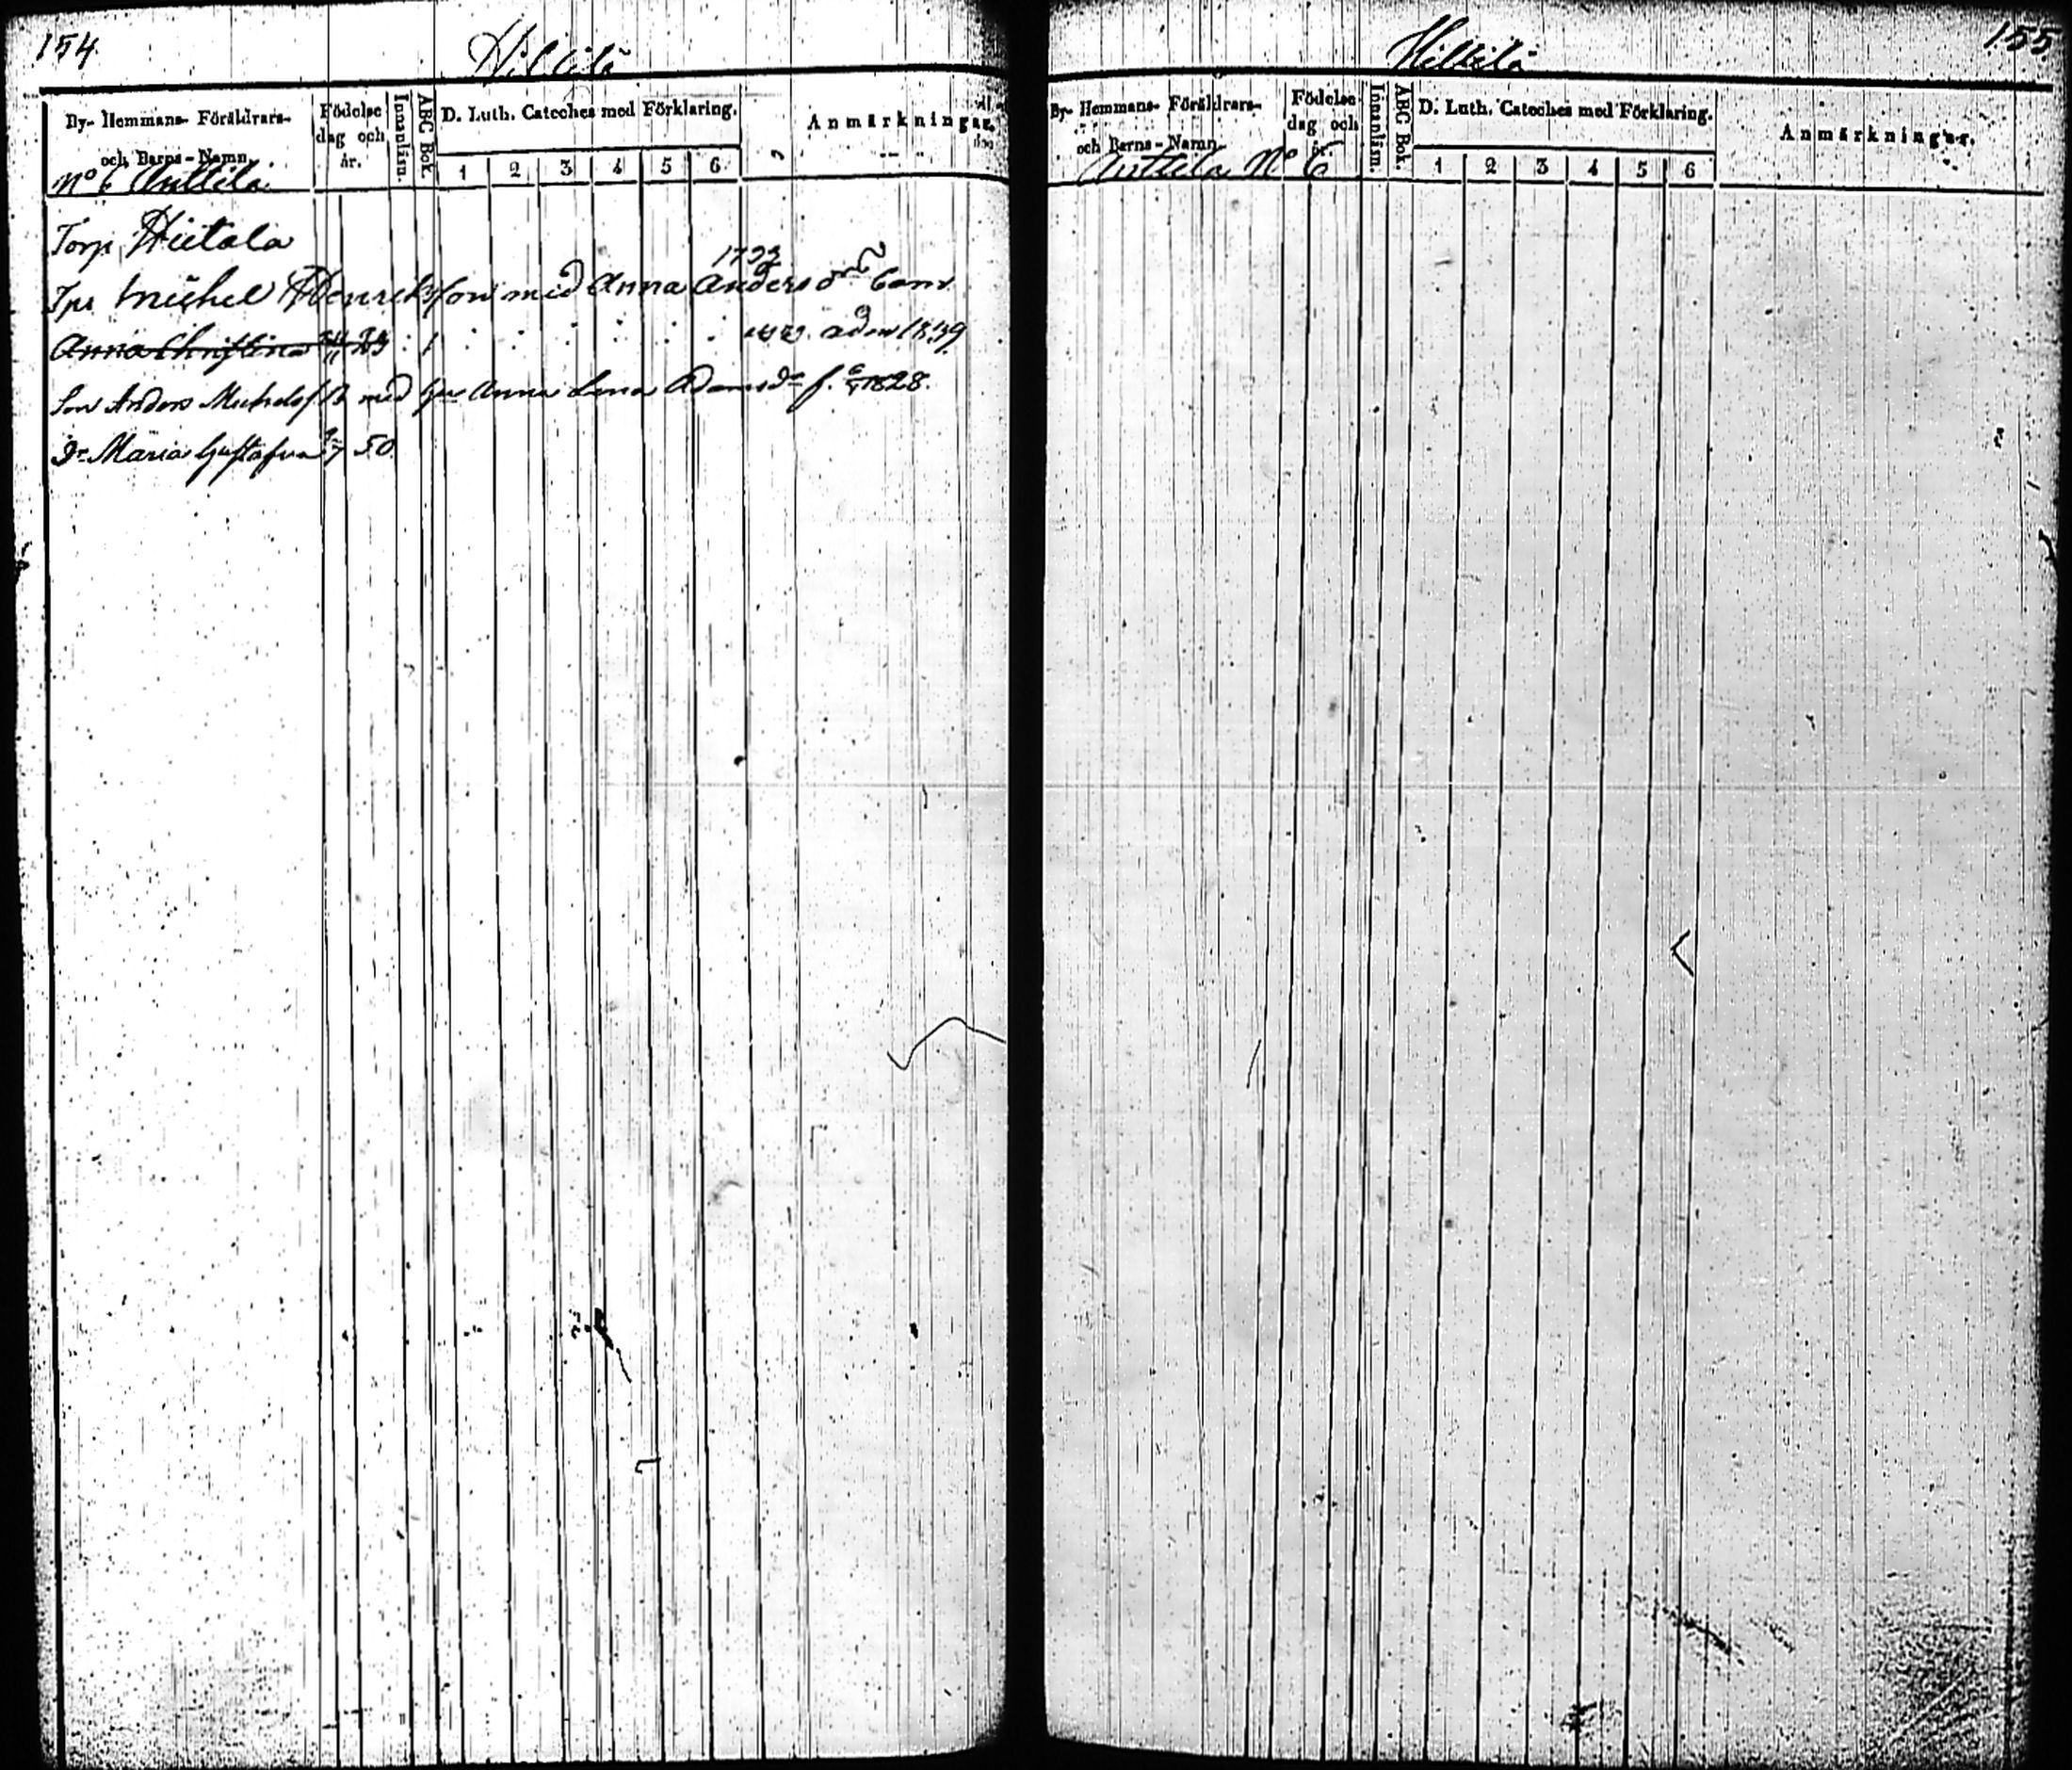 154
Hiltilä
By- Hemmans- Föräldrars- och Barns-Namn.
Födelse dag och år.
Innanläsn.
ABC Bok.
D. Luth. Cateches med Förklaring.
1 2 3 4 5 6
Anmärkningar.
No 6 Anttila
Torp Hietala
Michel Henriksson med Anna Anders
Anna Christina 1 adm 1839
Son Anders med Anna Lena f. 1828.
Maria Gustafva 50
155
Hiltilä
By- Hemmans- Föräldrars- och Barns-Namn
Födelse dag och år.
Innanläsn.
ABC Bok.
D. Luth. Cateches med Förklaring.
1 2 3 4 5 6
Anmärkningar.
Anttila No 6